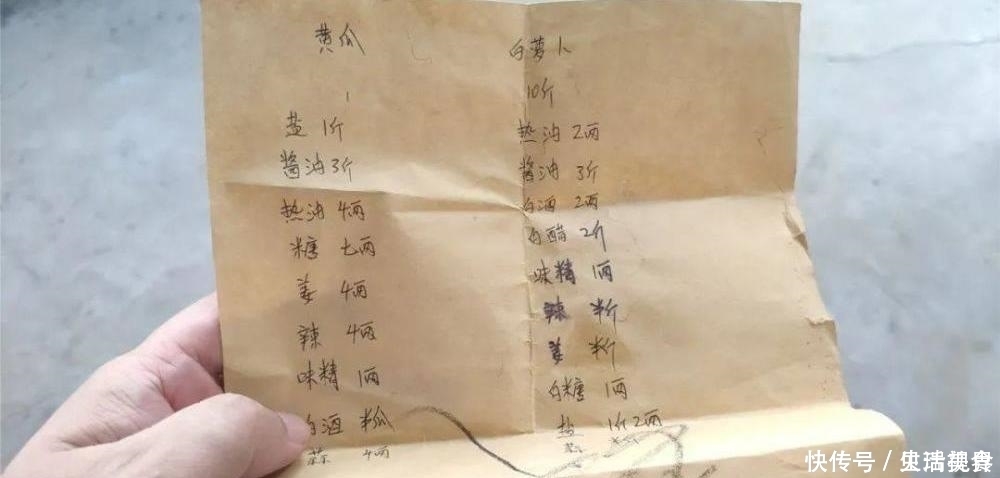 黄瓜
盐 1斤
酱油3斤
热油 4两
糖 七两
姜 4两
辣 4两
味精 1两
白酒 半瓜
蒜 4两
白萝卜
10斤
热油 2两
酱油 3斤
白酒 2两
白醋 2斤
味精 1两
辣 半斤
姜 半斤
白糖 1两
盐 1斤2两
快传号/